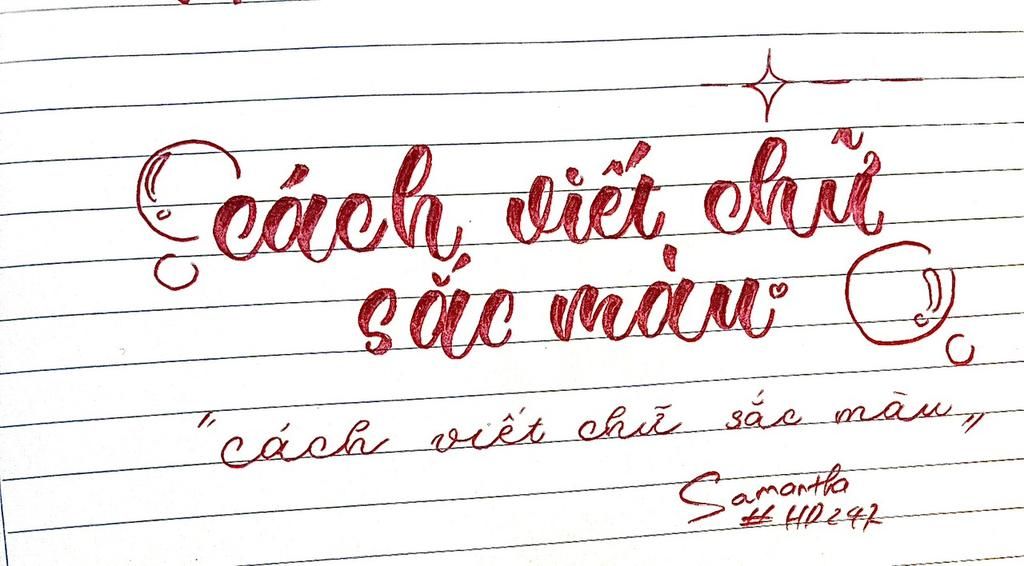 cách viết chữ
sắc màu
"cách viết chữ sắc màu"
Samantha
#HD242